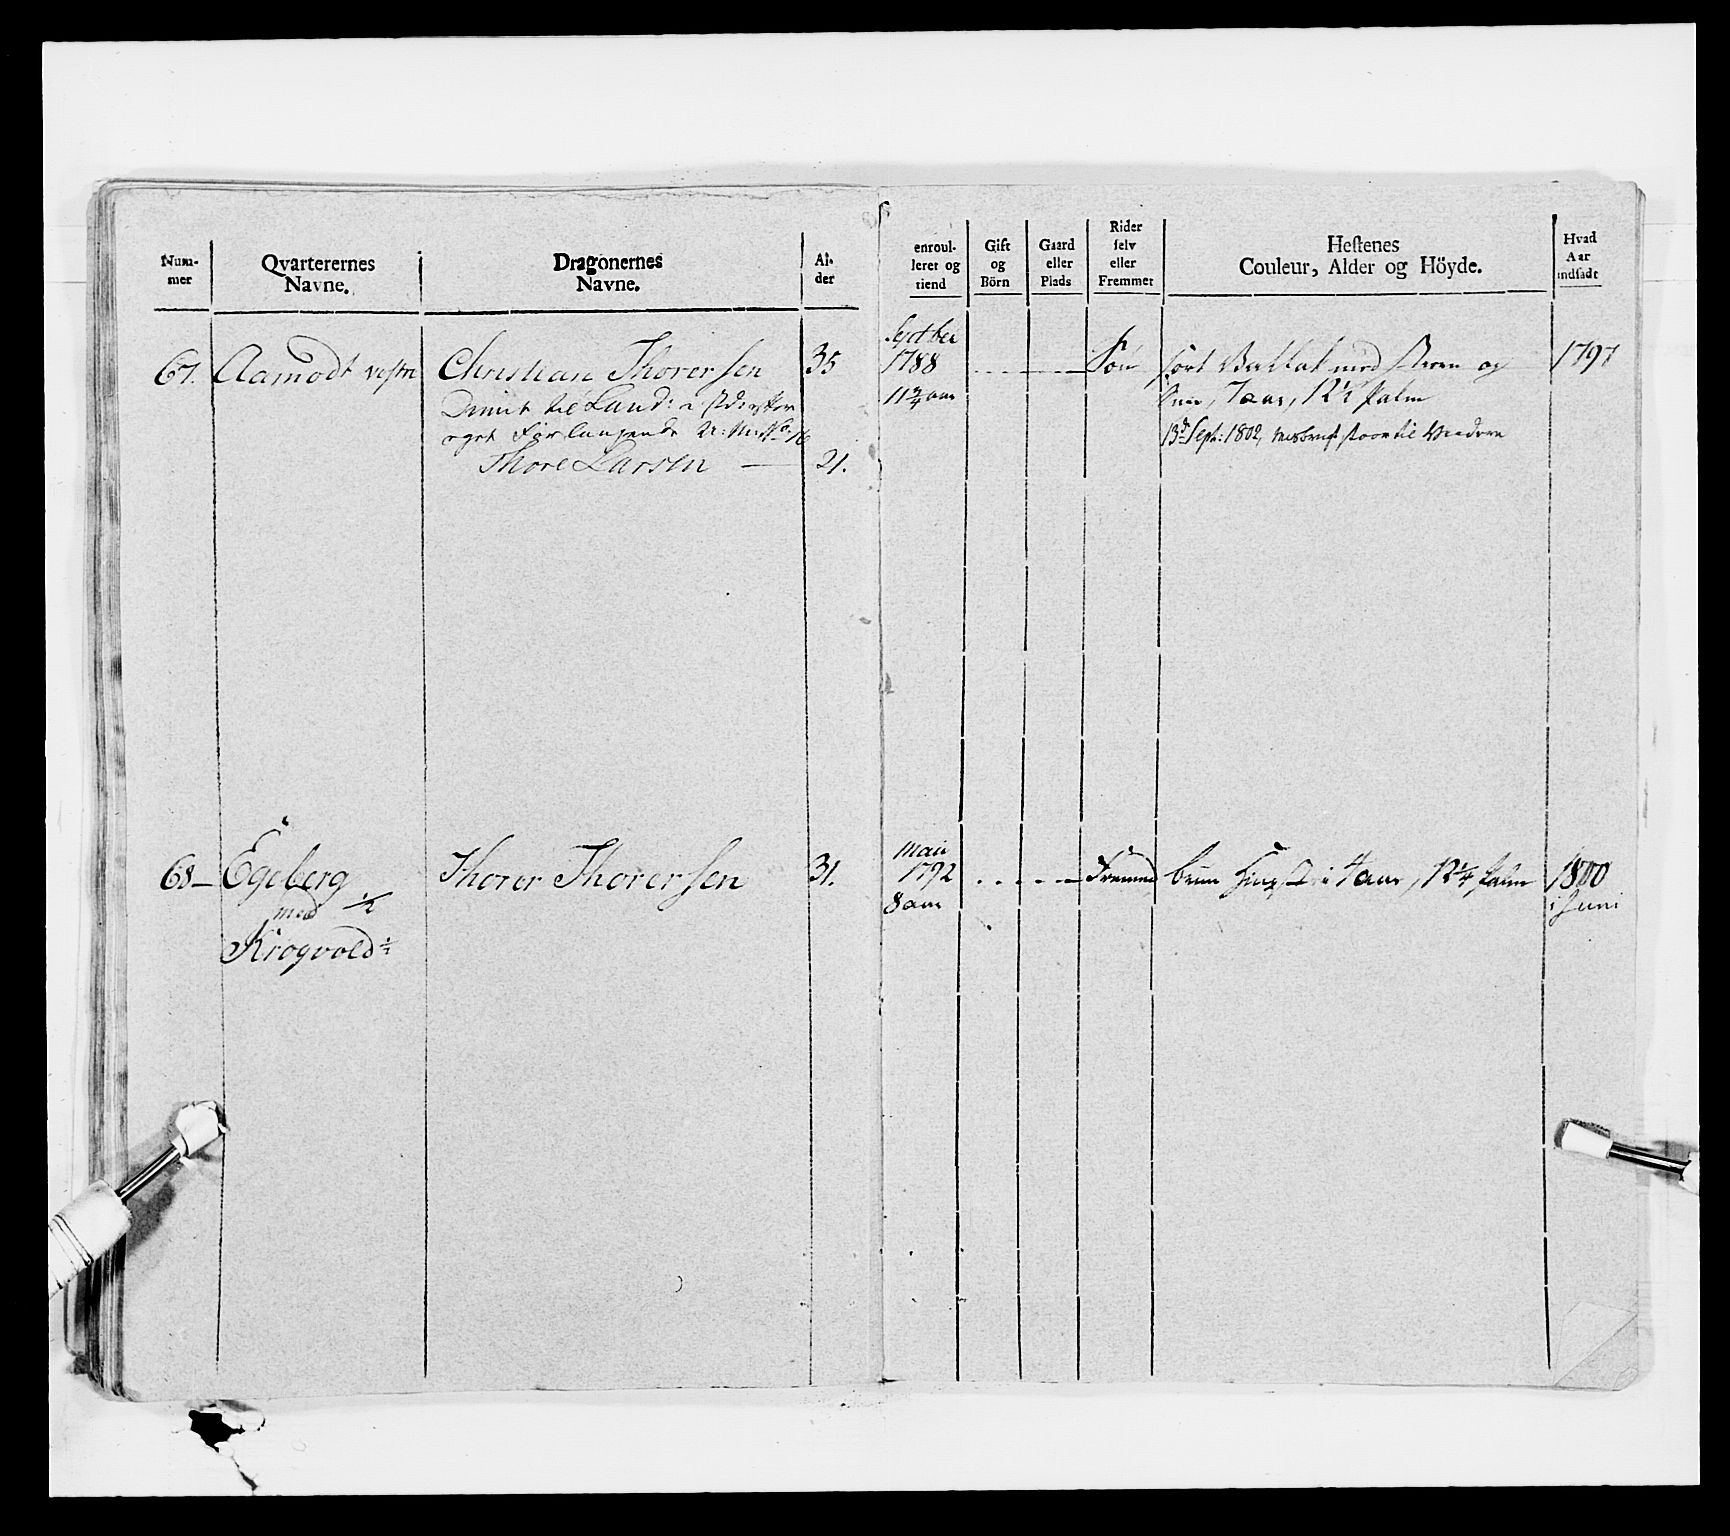 Num-
mer
Qvarterernes
Navne.
Dragonernes
Navne.
Al-
der
enroul-
leret og
tiend
Gift
og
Börn
Gaard
eller
Plads
Rider
selv
eller
Fremmet
Hestenes
Couleur, Alder og Höyde.
Hvad
Aar
indsadt
67. Aamodt vestre
Christian Thorersen 35
til Land:
Thore Larsen — 21.
Septber
1788
11 3/4 aar
sort Vallak med Stiern og
7 aar, 12 1/2 Palm
13d Sept: 1802,
1797
68 — Egeberg 1/2
med
Krogvold 1/2
Thorer Thorersen 31.
Maii
1792
8 aar
Fremmed
brun Hingst 4 aar, 12 1/4 Palm
1800
i Juni